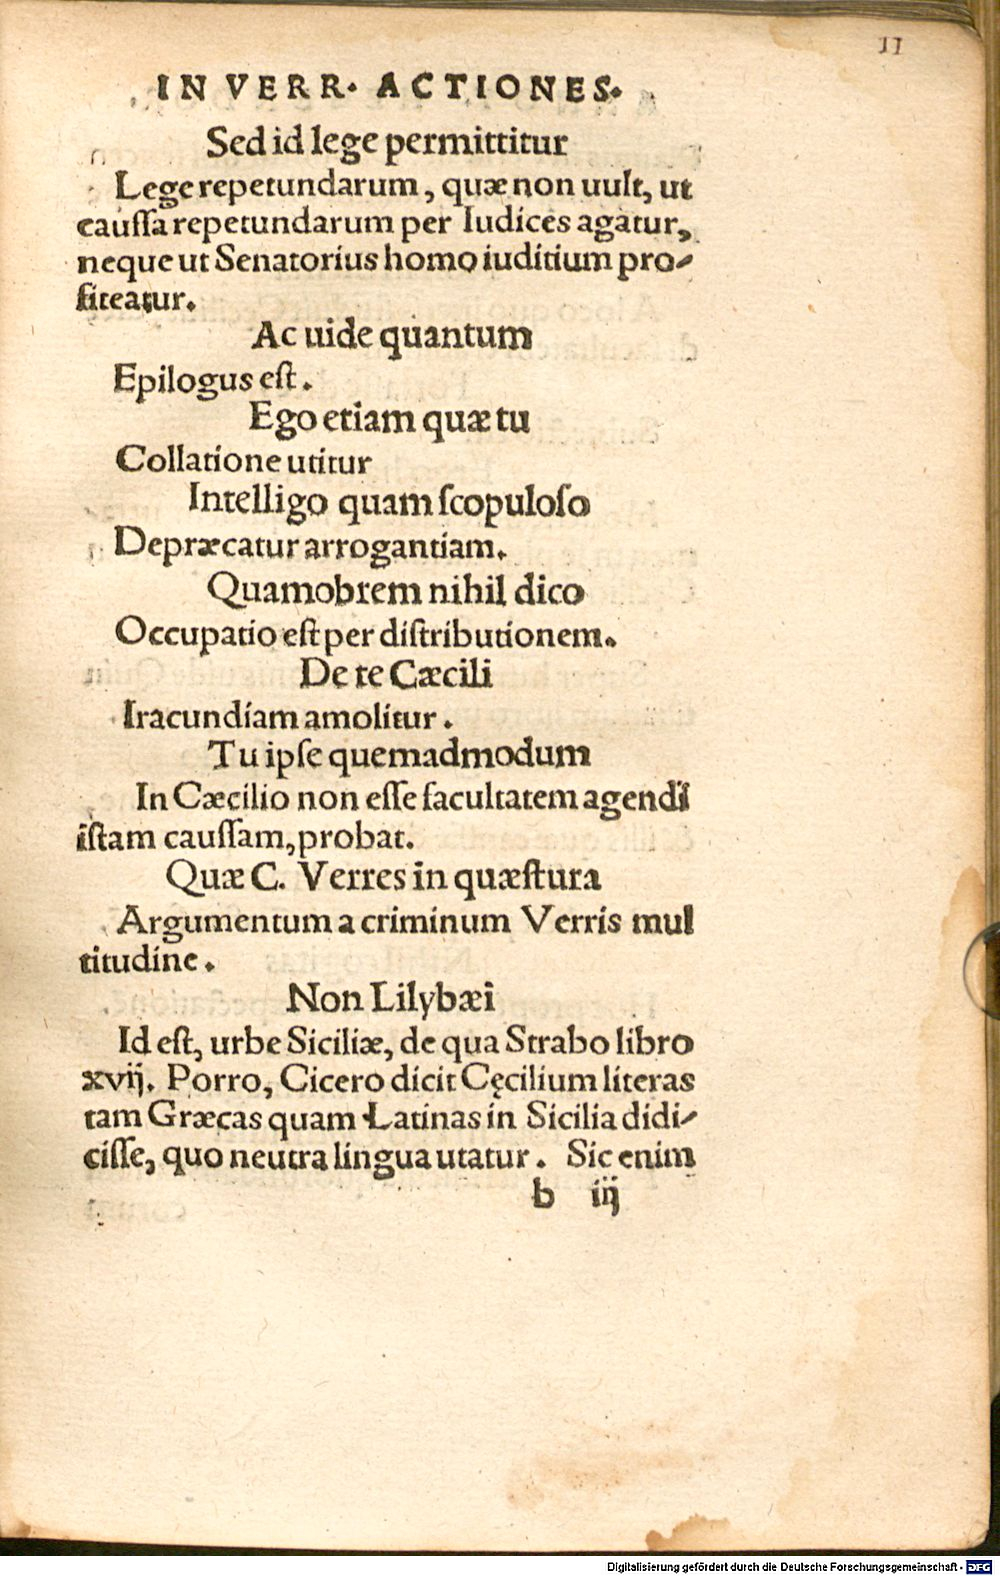 11
IN VERR. ACTIONES.
Sed id lege permittitur
Lege repetundarum, quæ non uult, ut
cauſſa repetundarum per Iudices agatur,
neque ut Senatorius homo iuditium pro-
fiteatur.
Ac uide quantum
Epilogus eſt.
Ego etiam quæ tu
Collatione utitur
Intelligo quam ſcopuloſo
Depræcatur arrogantiam.
Quamobrem nihil dico
Occupatio eſt per diſtributionem.
De te Cæcili
Iracundiam amolitur.
Tu ipſe quemadmodum
In Cæcilio non eſſe facultatem agendi
iſtam cauſſam, probat.
Quæ C. Verres in quæſtura
Argumentum a criminum Verris mul
titudine.
Non Lilybæi
Id eſt, urbe Siciliæ, de qua Strabo libro
xvij. Porro, Cicero dicit Cęcilium literas
tam Græcas quam Latinas in Sicilia didi-
ciſſe, quo neutra lingua utatur. Sic enim
b iij
Digitalisierung gefördert durch die Deutsche Forschungsgemeinschaft - DFG